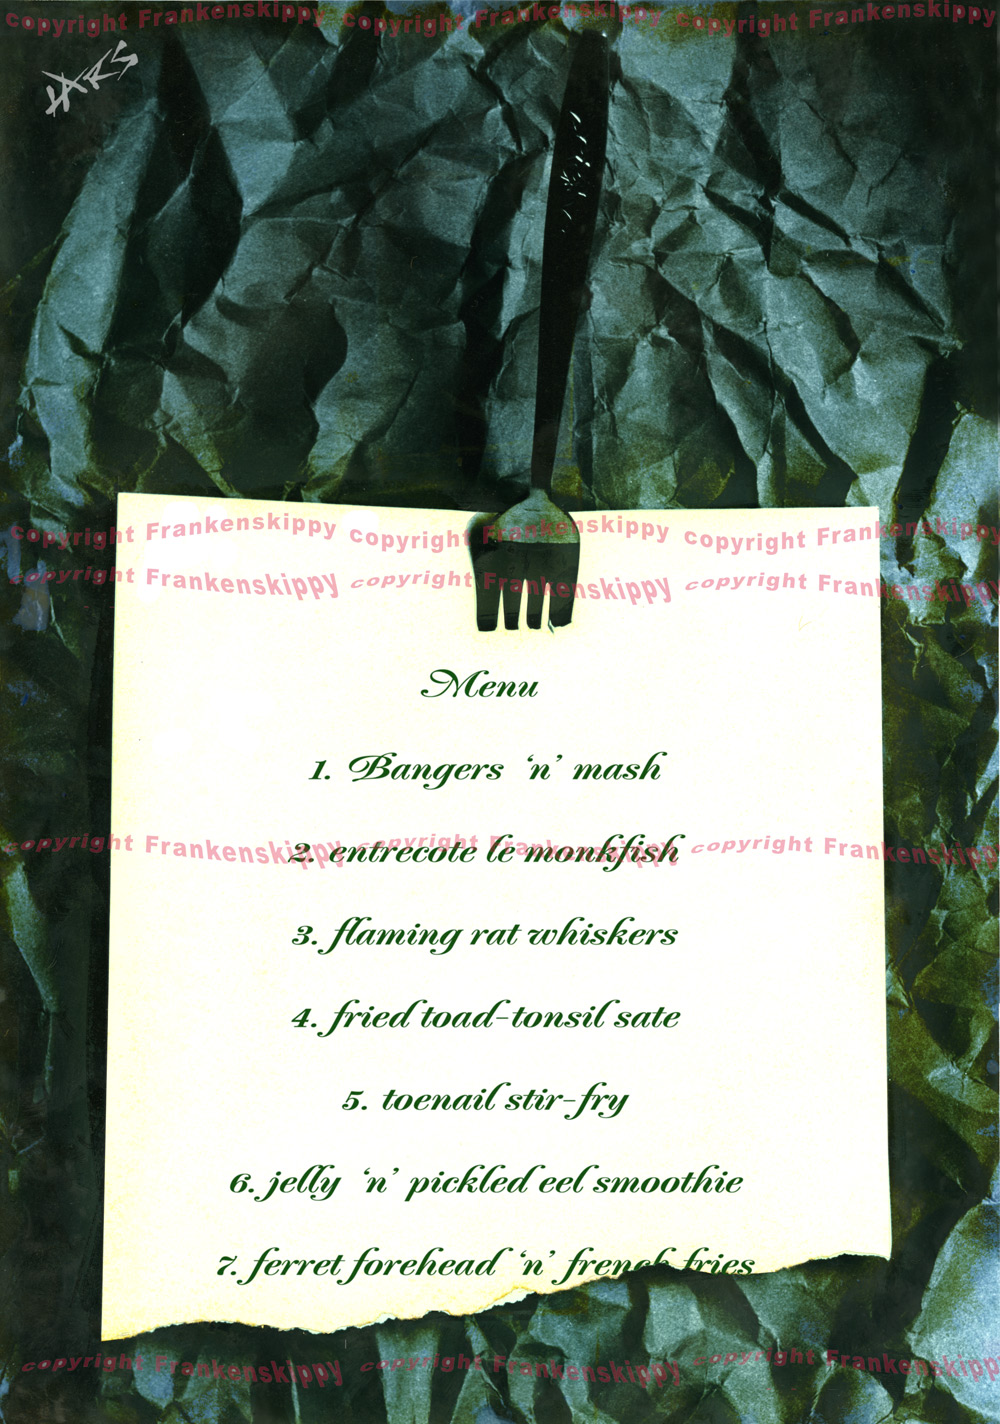 copyright Frankenskippy copyright Frankenskippy copyright Frankenskippy
copyright Frankenskippy copyright Frankenskippy copyright Frankenskippy
copyright Frankenskippy copyright Frankenskippy copyright Frankenskippy
Menu
1. Bangers ‘n’ mash
copyright Frankenskippy copyright Frankenskippy copyright Frankenskippy
2. entrecote le monkfish
3. flaming rat whiskers
4. fried toad-tonsil sate
5. toenail stir-fry
6. jelly ‘n’ pickled eel smoothie
7. ferret forehead ‘n’ french fries
copyright Frankenskippy copyright Frankenskippy copyright Frankenskippy